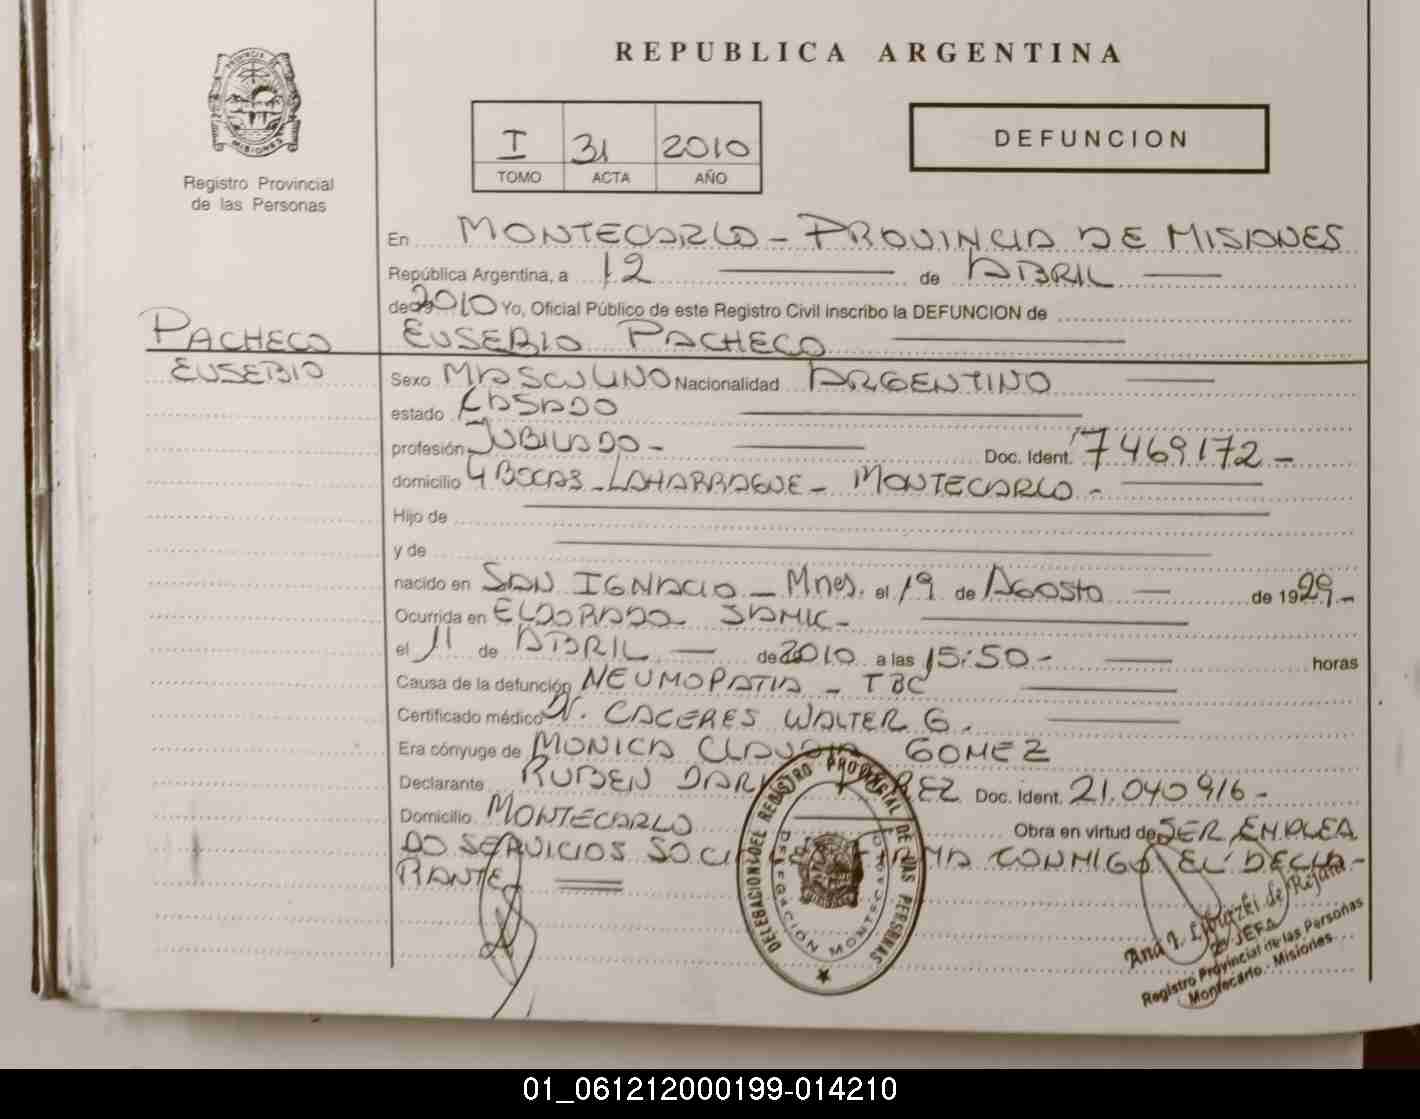 REPUBLICA ARGENTINA
PROVINCIA DE
MISIONES
Registro Provincial
de las Personas
I 31 2010
TOMO ACTA AÑO
DEFUNCION
En MONTECARLO - PROVINCIA DE MISIONES
República Argentina, a 12 de ABRIL
de 2010 Yo, Oficial Público de este Registro Civil inscribo la DEFUNCION de
PACHECO EUSEBIO PACHECO
EUSEBIO
Sexo MASCULINO Nacionalidad ARGENTINO
estado CASADO
profesión JUBILADO - Doc. Ident. 7469172 -
domicilio 4 BOCAS - LAHARRAGUE - MONTECARLO -
Hijo de
y de
nacido en SAN IGNACIO - Mnes. el 19 de AGOSTO de 1929 -
Ocurrida en ELDORADO - SAMIC -
el 11 de ABRIL de 2010 a las 15:50 - horas
Causa de la defunción NEUMOPATIA - TBC
Certificado médico CACERES WALTER G.
Era cónyuge de MONICA CLAUDIA GOMEZ
Declarante RUBEN Doc. Ident. 21.040916 -
Domicilio MONTECARLO Obra en virtud de SER EMPLEA
DO SERVICIOS FIRMA CONMIGO EL DECLA-
RANTE
DELEGACION DEL REGISTRO PROVINCIAL DE LAS PERSONAS
DELEGACIÓN MONTECARLO
Ana
JEFA
Registro Provincial de las Personas
Montecarlo - Misiones
01_061212000199-014210